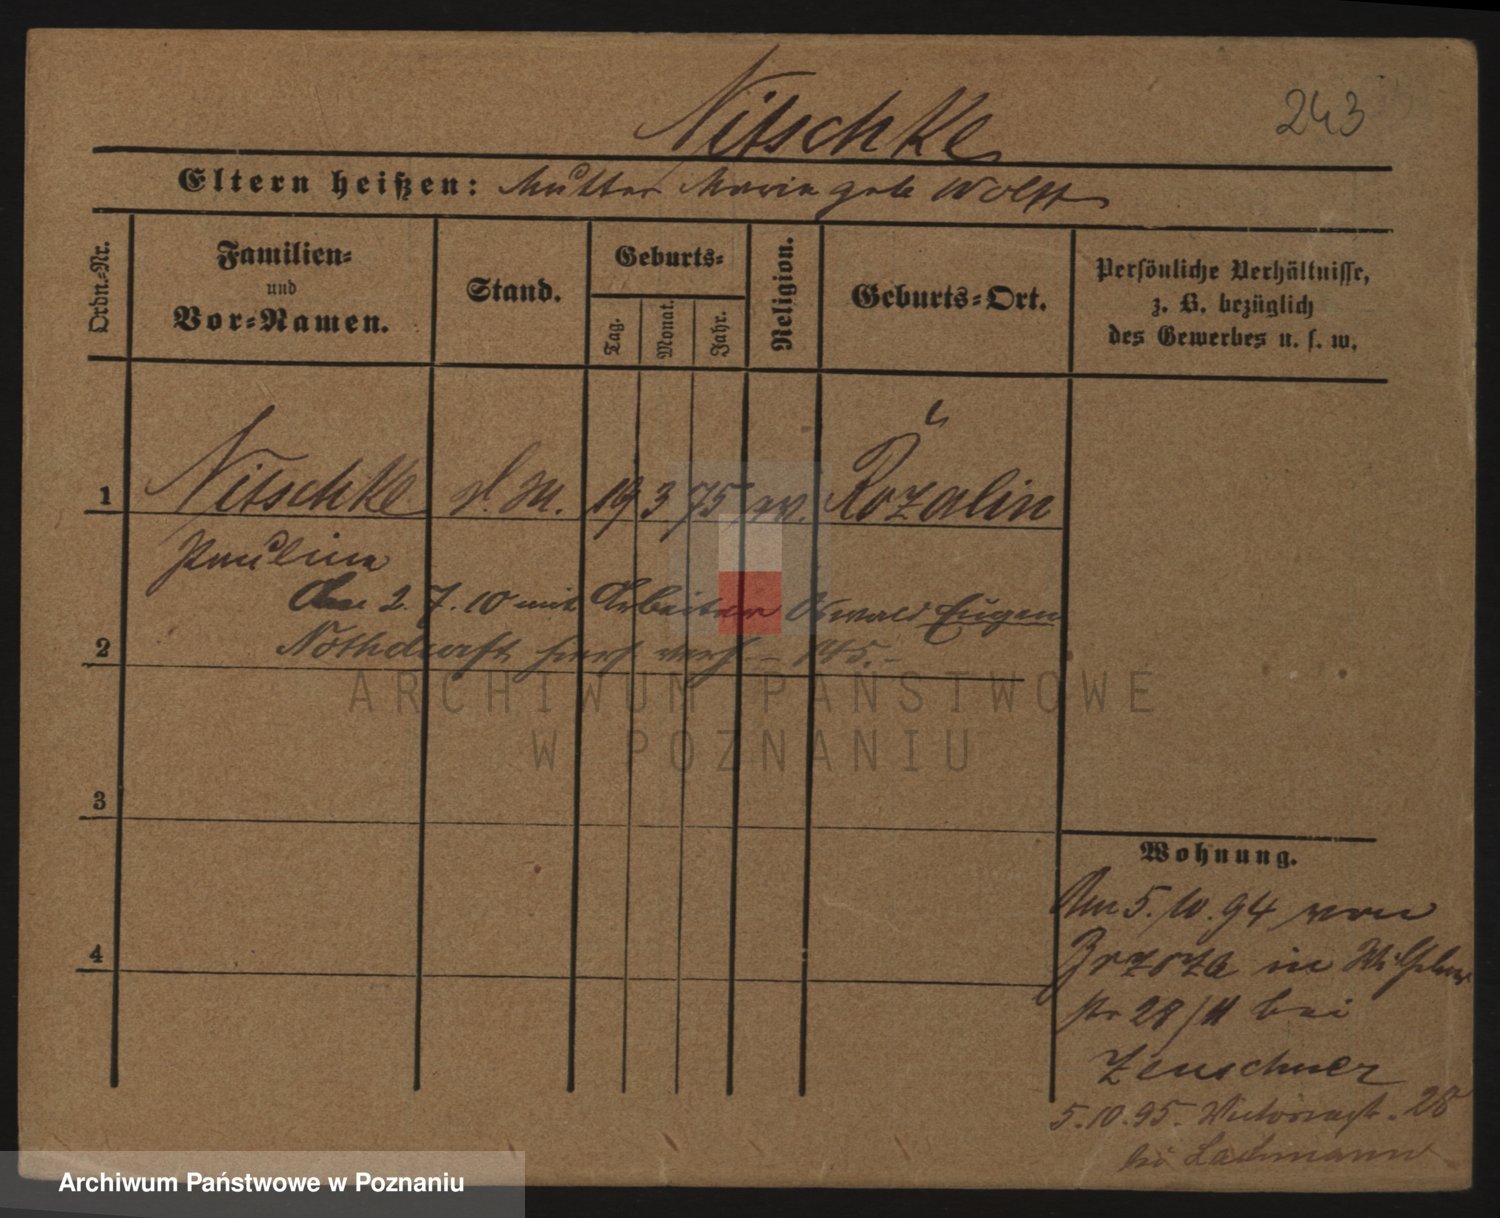 Nitschke
243
Eltern heißen: Mutter Marie geb. Wolff
Ordn.-Nr.
Familien-
und
Vor-Namen.
Stand.
Geburts-
Tag.
Monat.
Jahr.
Religion.
Geburts-Ort.
Persönliche Verhältnisse,
z. B. bezüglich
des Gewerbes u. s. w.
1
Nitschke d. M. 19 3 75 ev. Rozalin
Pauline
Am 2. 7. 10 mit Arbeiter Oswald Eugen
2
Nothdurft
ARCHIWUM PAŃSTWOWE
W POZNANIU
3
Wohnung.
Am 5. 10. 94 von
in Wilhelm
str 28/II bei
4
Zeuschner
5.10.95. Victoriastr. 28
bei Lachmann
Archiwum Państwowe w Poznaniu